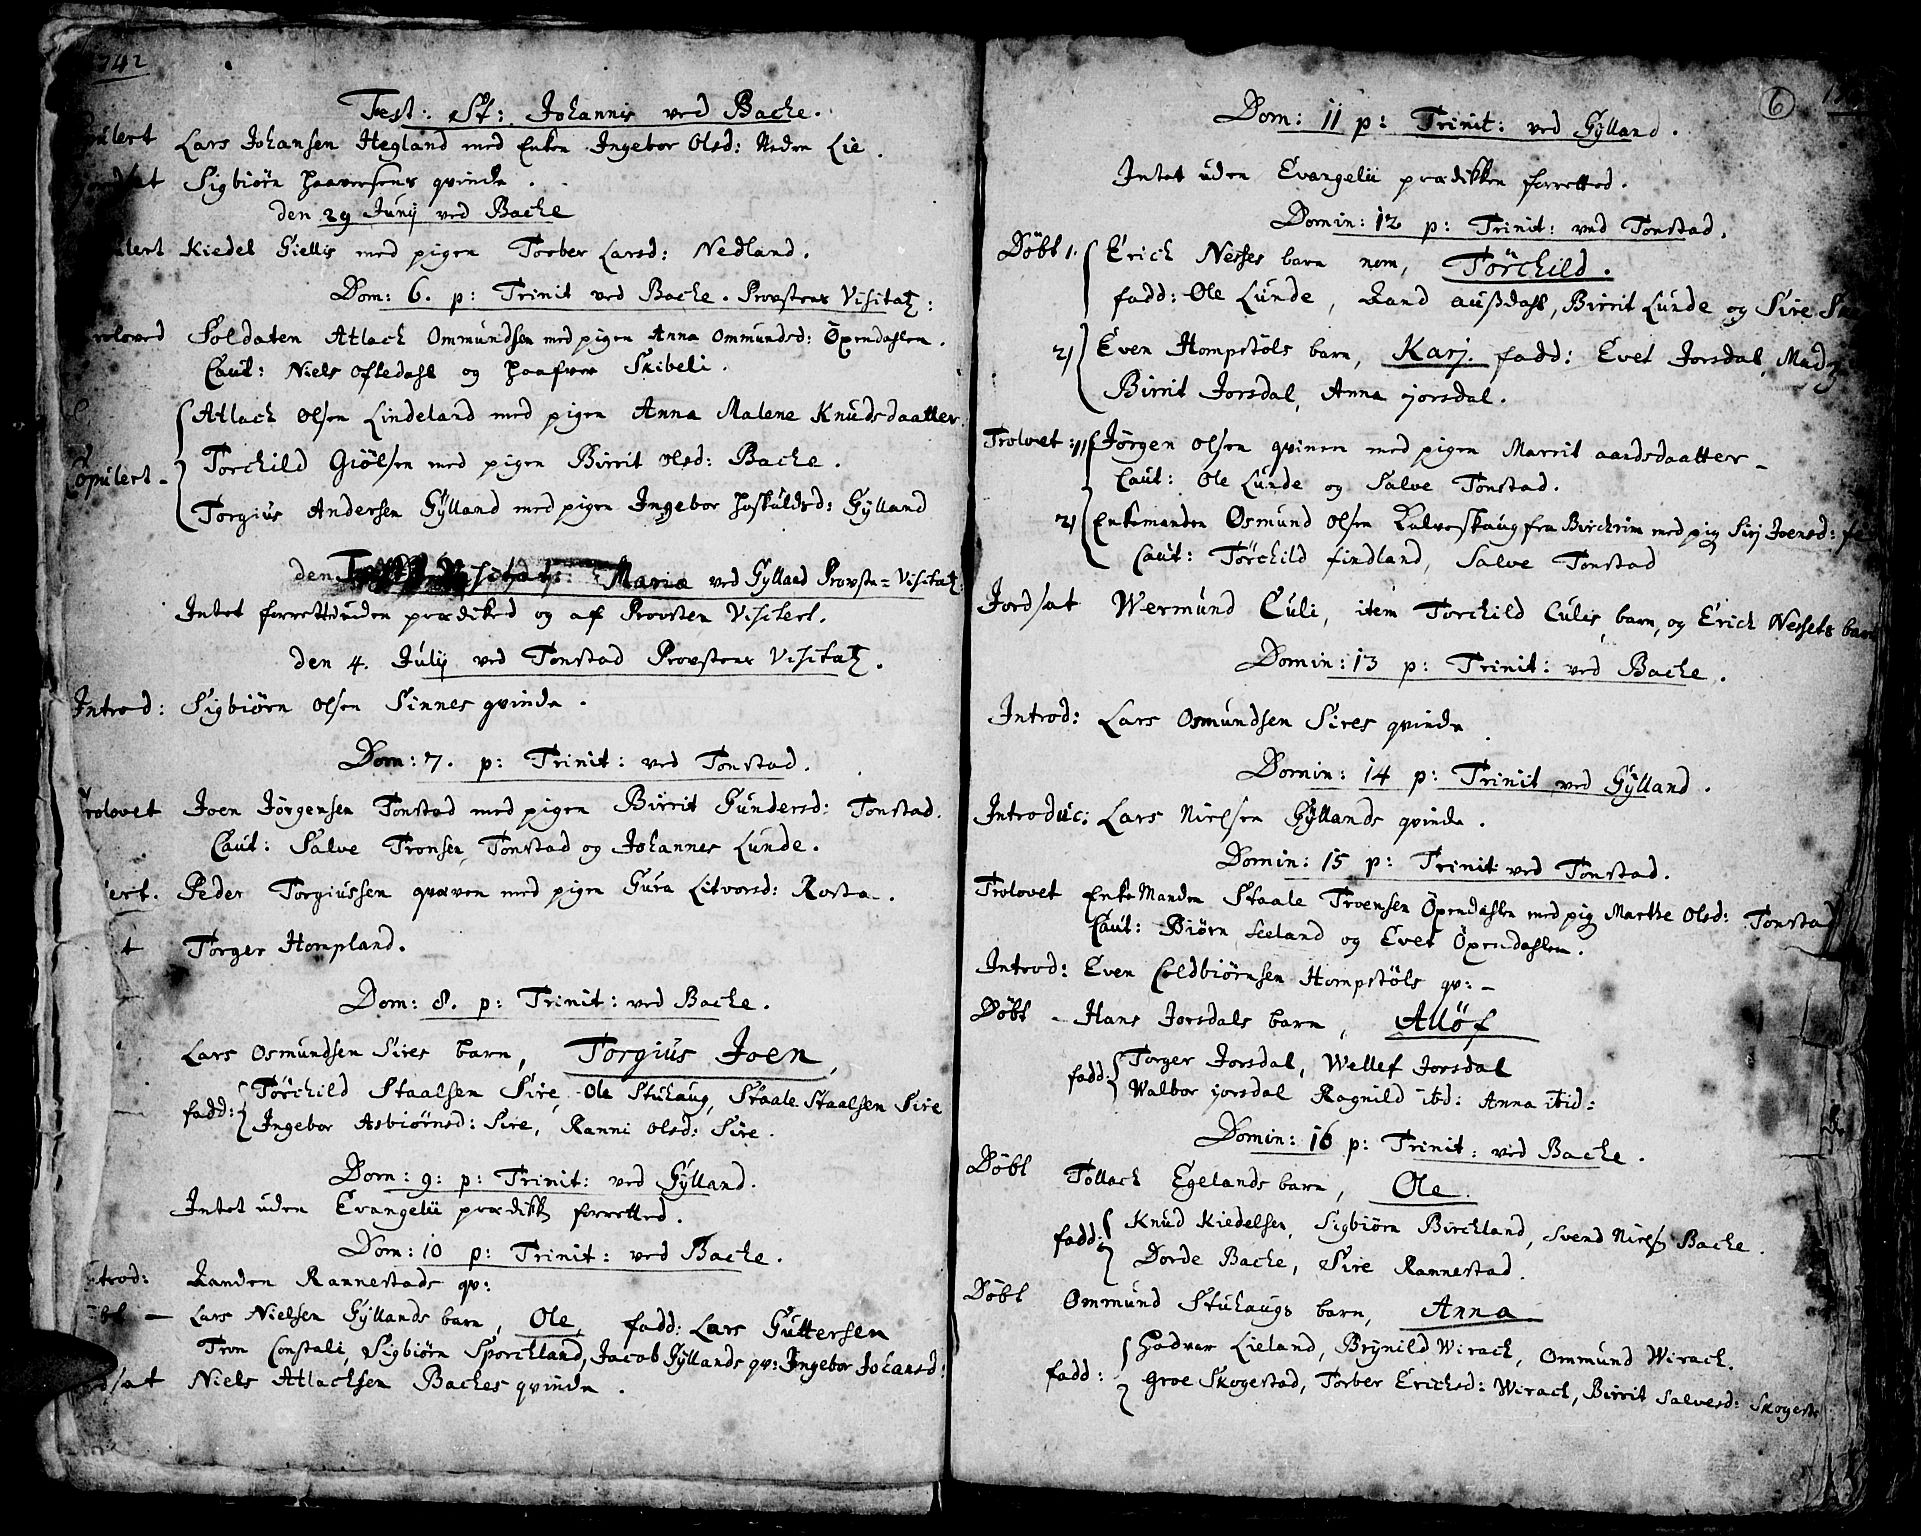 742
Fest: St: Johannis ved Bache.
Lars Johansen Hegland med Enken Ingebor Olsd: Neden Lie.
Sigbiörn Haaversens qvinde.
den 29 Junij ved Bache
Kiedel Giellis med pigen Torber Larsd: Nedland.
Dom: 6. p: Trinit ved Bache. Provstens Visitatz:
Soldaten Atlach Ommundsen med pigen Anna Ommundsd: Öpendahlen.
Caut: Niels Oftedahl og Haafver Skibeli.
Atlach Olsen Lindeland med pigen Anna Malene Knudsdaatter
Copulert - Torchild Giölsen med pigen Birrit Olsd: Bache.
Torgius Andersen Gÿlland med pigen Ingebor Hoskuldsd: Gÿlland
den Maria ved Gÿlland Provstn= Visitatz:
Intet forretted uden prædiked og af Provsten Visitert.
den 4. Julij ved Tonstad Provstens Visitatz.
Introd: Sigbiörn Olsen Sinnes qvinde.
Dom: 7. p: Trinit: ved Tonstad.
Trolovet Joen Jörgensen Tonstad med pigen Birrit Gundersd: Tonstad.
Caut: Salve Tronsen Tonstad og Johannes Lunde.
Peder Torgiussen qvæven med pigen Gura Litvorsd: Rosta.
Torger Hompland.
Dom: 8. p: Trinit: ved Bache.
Lars Osmundsen Sires barn, Torgius Joen,
fadd: Törchild Staalsen Sire, Ole Stuhaug, Staale Staalsen Sire
Ingebor Asbiörnsd: Sire, Ranni Olsd: Sire.
Dom: 9: p: Trinit: ved Gÿlland.
Intet uden Evangelii prædikk forretted.
Dom: 10 p: Trinit: ved Bache.
Introd: Randen Rannestads qv:
Lars Nielsen Gÿllands barn, Ole, fadd: Lars Guttersen
Tron Constali, Sigbiörn Sporchland, Jacob Gÿllands qv: Ingebor Johansd:
Niels Atlachsen Baches qvinde.
6
Dom: 11 p: Trinit: ved Gÿlland.
Intet uden Evangelii prædikken forretted.
Domin: 12 p: Trinit: ved Tonstad.
Döbt 1. Erich Nesses barn nom, Törchild.
fadd: Ole Lunde, Rand Aussdahl, Birrit Lunde og Sire
2) Even Hompstöls barn, Karj. fadd: Evet Jorsdal, Madz
Birrit Jorsdal, Anna Jorsdal.
Trolovet: 1) Jörgen Olsen qvinen med pigen Marrit Aandsdaatter -
Caut: Ole Lunde og Salve Tonstad.
2) Enkemanden Osmund Olsen Kalveskaug fra Birchrim med pig Sirj Joensd:
Caut: Törchild findland, Salve Tonstad
Jordsat Wermund Culi, item Torchild Culis barn, og Erich Nessets barn
Domin: 13 p: Trinit: ved Bache.
Introd: Lars Osmundsen Sires qvinde
Domin: 14 p: Trinit ved Gÿlland.
Introduc: Lars Nielsen Gÿllands qvinde.
Domin: 15 p: Trinit ved Tonstad.
Trolovet Enke Manden Staale Troensen Öpendahlen med pig Marthe Olsd: Tonstad
Caut: Biörn Leeland og Evet Öpendahlen.
Introd: Even Coldbiörnsen Hompstöls qv: -
Döbt - Hans Jorsdals barn, Allöf
fadd: Torger Jorsdal, Wellef Jorsdal
Walbor Jorsdal Ragnild ibd: Anna ibid:
Domin: 16 p: Trinit: ved Bache.
Döbt Tollach Egelands barn, Ole.
fadd: Knud Kiedelsen, Sigbiörn Birchland, Svend Niels Bache.
Dorde Bache, Sire Rannestad.
Döbt Ommund Stuhaugs barn, Anna
fadd: Hadvar Lieland, Brÿnild Wirach, Ommund Wirach.
Groe Skogestad, Torber Erichsd: Wirach, Birrit Salvesd: Skogest